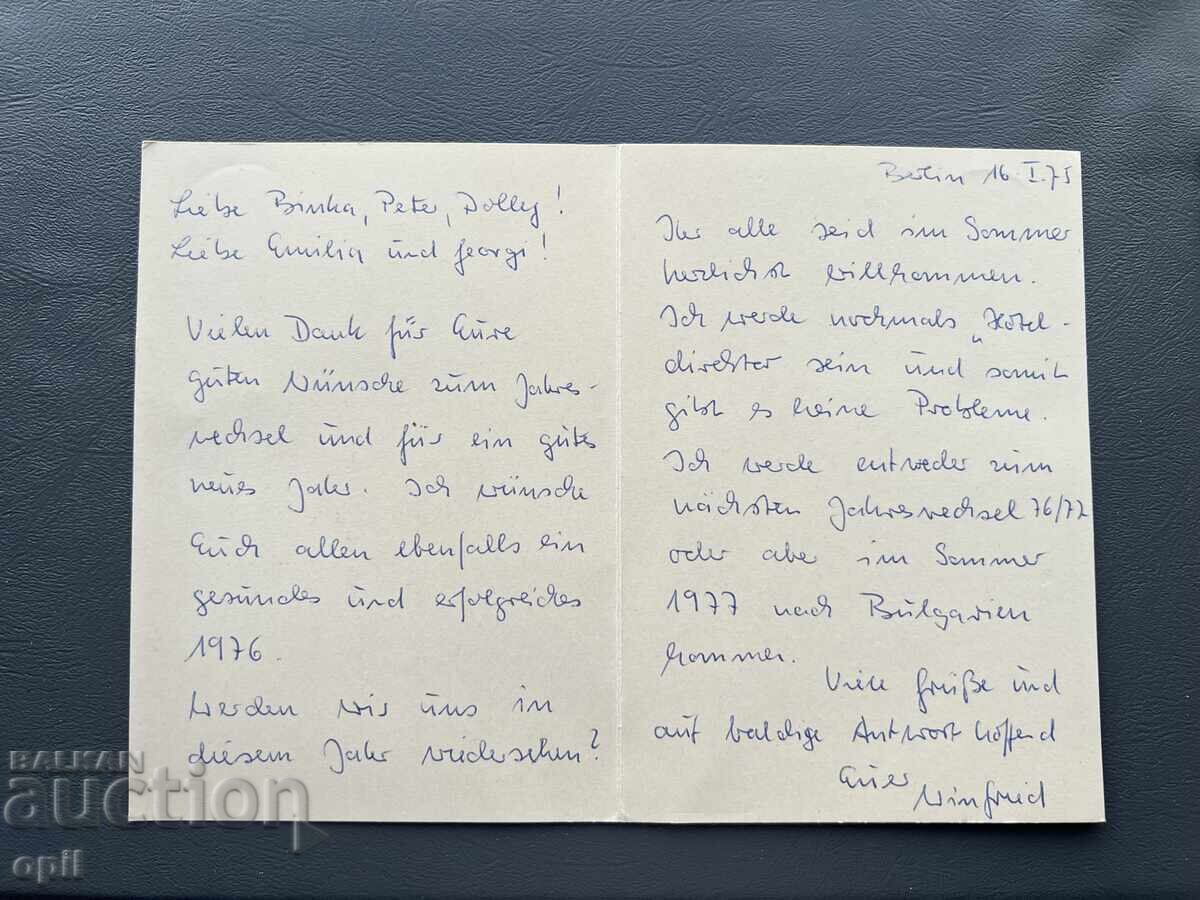 Liebe Binka, Peter, Dolly!
Liebe Emilia und Georgi!
Vielen Dank für Eure
guten Wünsche zum Jahres-
wechsel und für ein gutes
neues Jahr. Ich wünsche
Euch allen ebenfalls ein
gesundes und erfolgreiches
1976.
Werden wir uns in
diesem Jahr wiedersehen?
Berlin 16.I.75
Ihr alle seid im Sommer
herzlichst willkommen.
Ich werde nochmals „Hotel-
direktor sein und somit
gibt es keine Probleme.
Ich werde entweder zum
nächsten Jahreswechsel 76/77
oder aber im Sommer
1977 nach Bulgarien
kommen.
Viele Grüße und
auf baldige Antwort hoffend
Euer Winfried
BALKAN
auction
opil